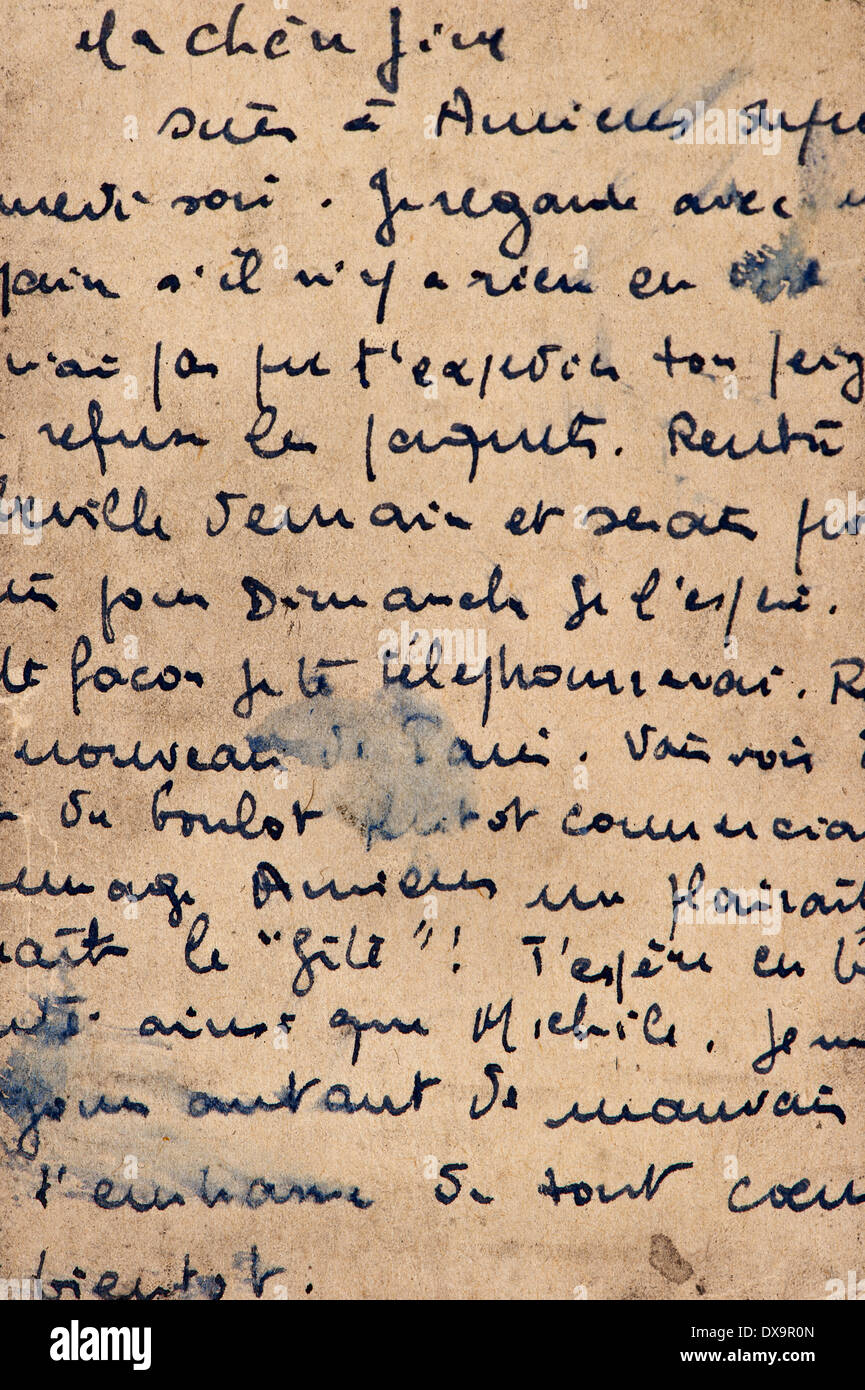 Ma chère
suis à Amiens depu
medi soir. Je regarde avec
s'il n'y a rien en
n'ai pas pu t'expédier ton peig
refuse les paquets. Rentre
leville demain et serais
pour Dimanche je l'espère.
te façon je te téléphonerai. R
nouveau de Paris. Vais voir
du boulot plutôt commercia
Amiens me plairait
le "Gîte"! T'espère en b
ainsi que Michèle. Je
jours autant de mauvais
t'embrasse de tout coeu
bientot.
alamy
a
Image ID: DX9R0N
www.alamy.com